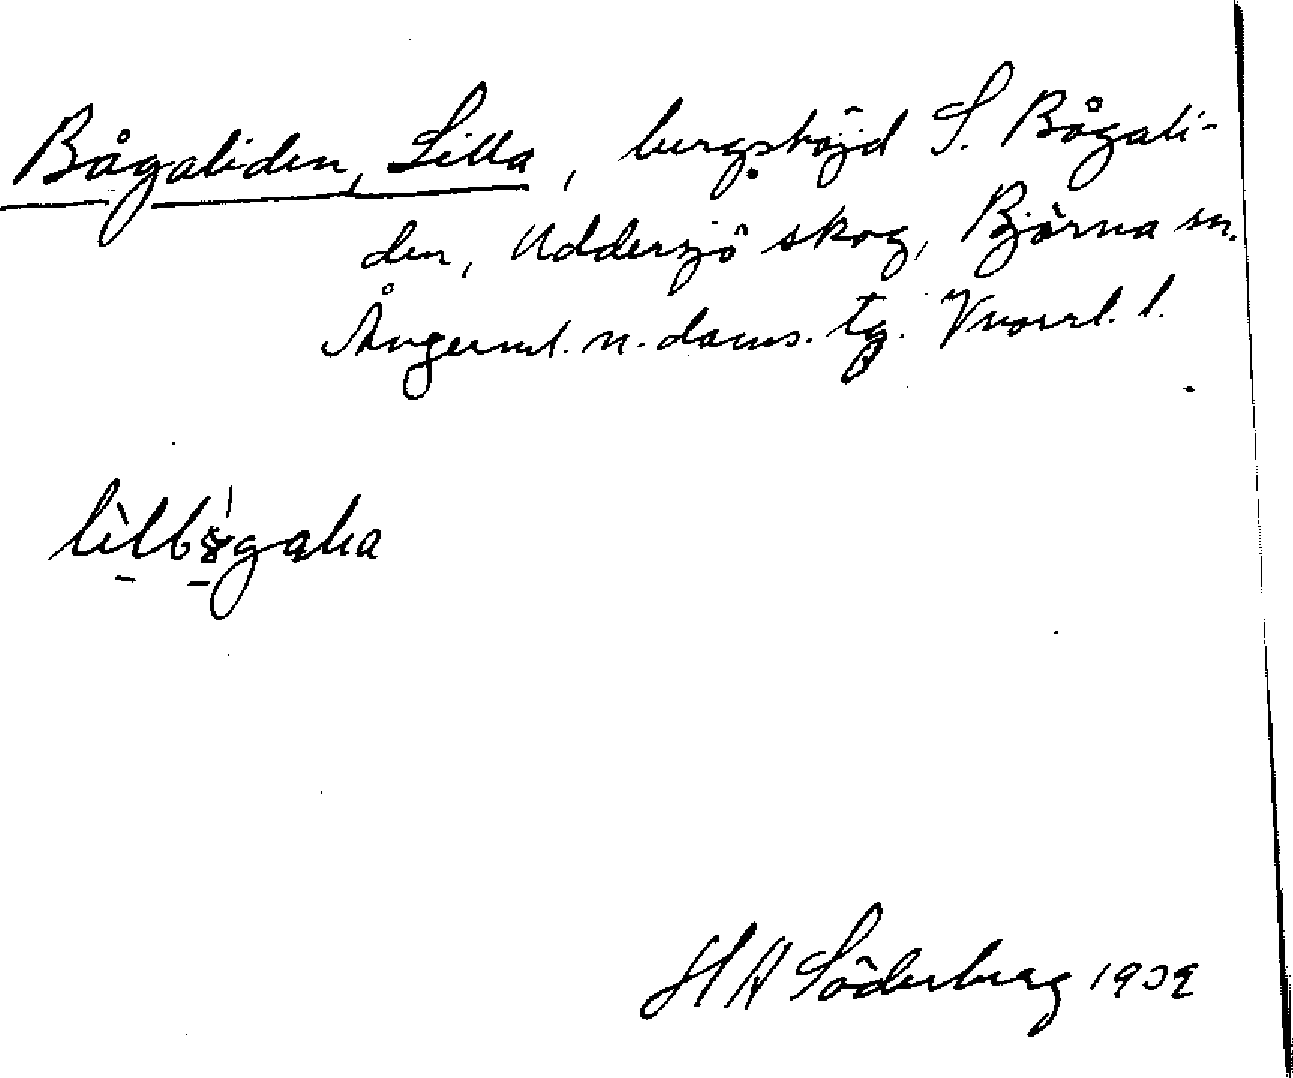 Bågaliden, Lilla, bergshöjd S. Bågali-
den, Uddersjö skog, Björna sn.
Ångerml. n. doms. tg. Vnorrl. l.
HA Söderberg 1932